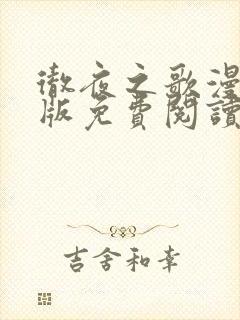 徹夜之歌漫
版免費閱讀
吉舍和幸